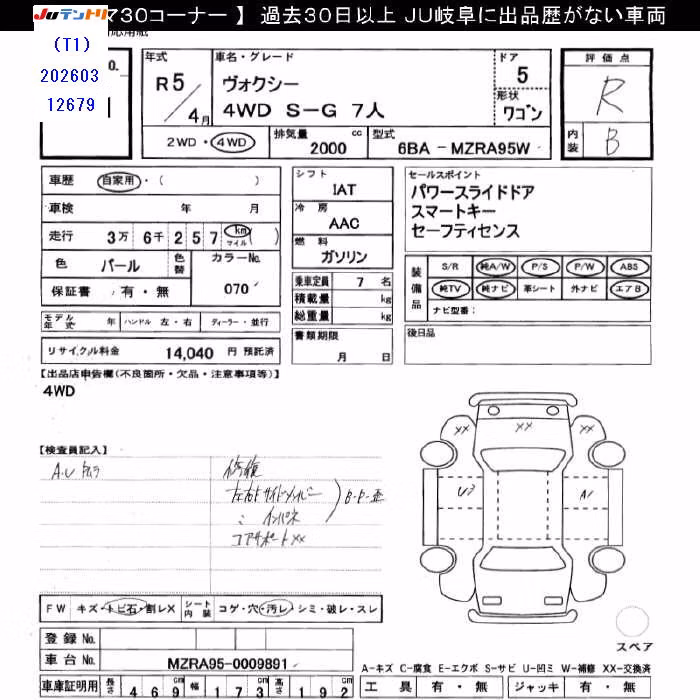 JUテントリ 730コーナー 】 過去30日以上 JU岐阜に出品歴がない車両
(T1)
202603
12679
o.
年式 車名・グレード ドア 評価点
R5/4月 ヴォクシー 5 R
4WD S-G 7人 形状 ワゴン
2WD・4WD 排気量 2000 cc 型式 6BA-MZRA95W 内装 B
車歴 自家用・( ) シフト IAT セールスポイント
車検 年 月 冷房 AAC パワースライドドア
スマートキー
走行 3万 6千 2 5 7 km マイル ( ) 燃料 ガソリン セーフティセンス
色 パール 色替 カラーNo. 070
保証書 有・無
乗車定員 7 名
積載量 kg
総重量 kg
装備品 S/R 純A/W P/S P/W ABS
純TV 純ナビ 革シート 外ナビ エアB
ナビ型番:
モデル年式 年 ハンドル 左・右 ディーラー・並行
書類期限 月 日
後日品
リサイクル料金 14,040 円 預託済
【出品店申告欄(不良箇所・欠品・注意事項等)】
4WD
【検査員記入】
A.U 修復
コアサポートXX
XX XX XX
U3 A1
FW キズ・トビ石・割レX シート内装 コゲ・穴・汚レ・シミ・破レ・スレ
スペア
登録 No.
車台 No. MZRA95-0009891
A-キズ C-腐食 E-エクボ S-サビ U-凹ミ W-補修 XX-交換済
車庫証明用 長さ 469cm 幅 173cm 高さ 192cm 工具 有・無 ジャッキ 有・無